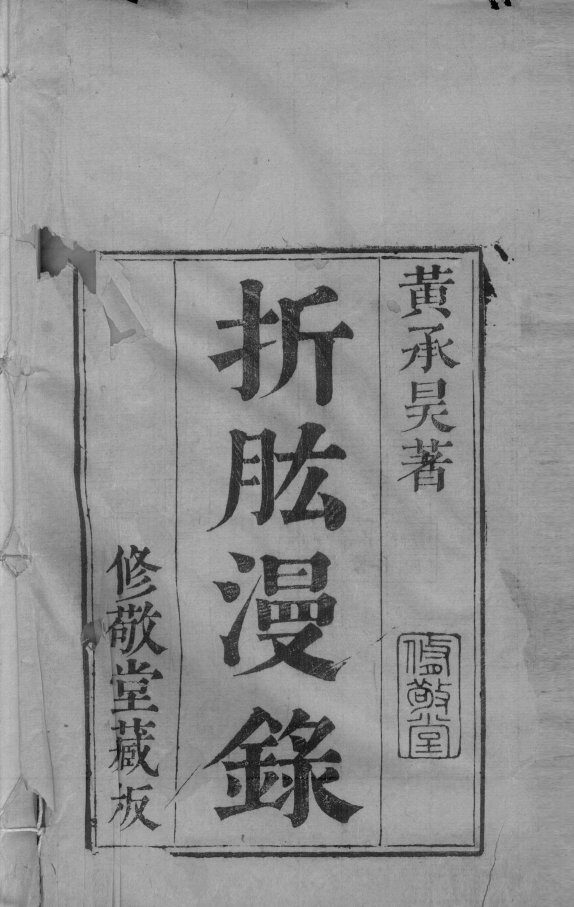 黄承昊著
修敬堂
折肱漫錄
修敬堂藏板